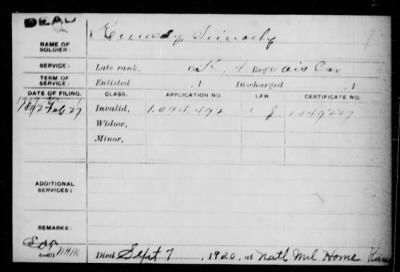 DEAD
NAME OF SOLDIER: Kennedy,
SERVICE: Late rank, Co. K, Reg't Cav
TERM OF SERVICE: Enlisted , 1 Discharged , 1
DATE OF FILING. CLASS. APPLICATION NO. LAW CERTIFICATE NO.
1892 Feb 27 Invalid, 1,094,492
Widow,
Minor,
ADDITIONAL SERVICES:
REMARKS:
Died Sept 7, 1920, at Nat'l Mil Home Kans